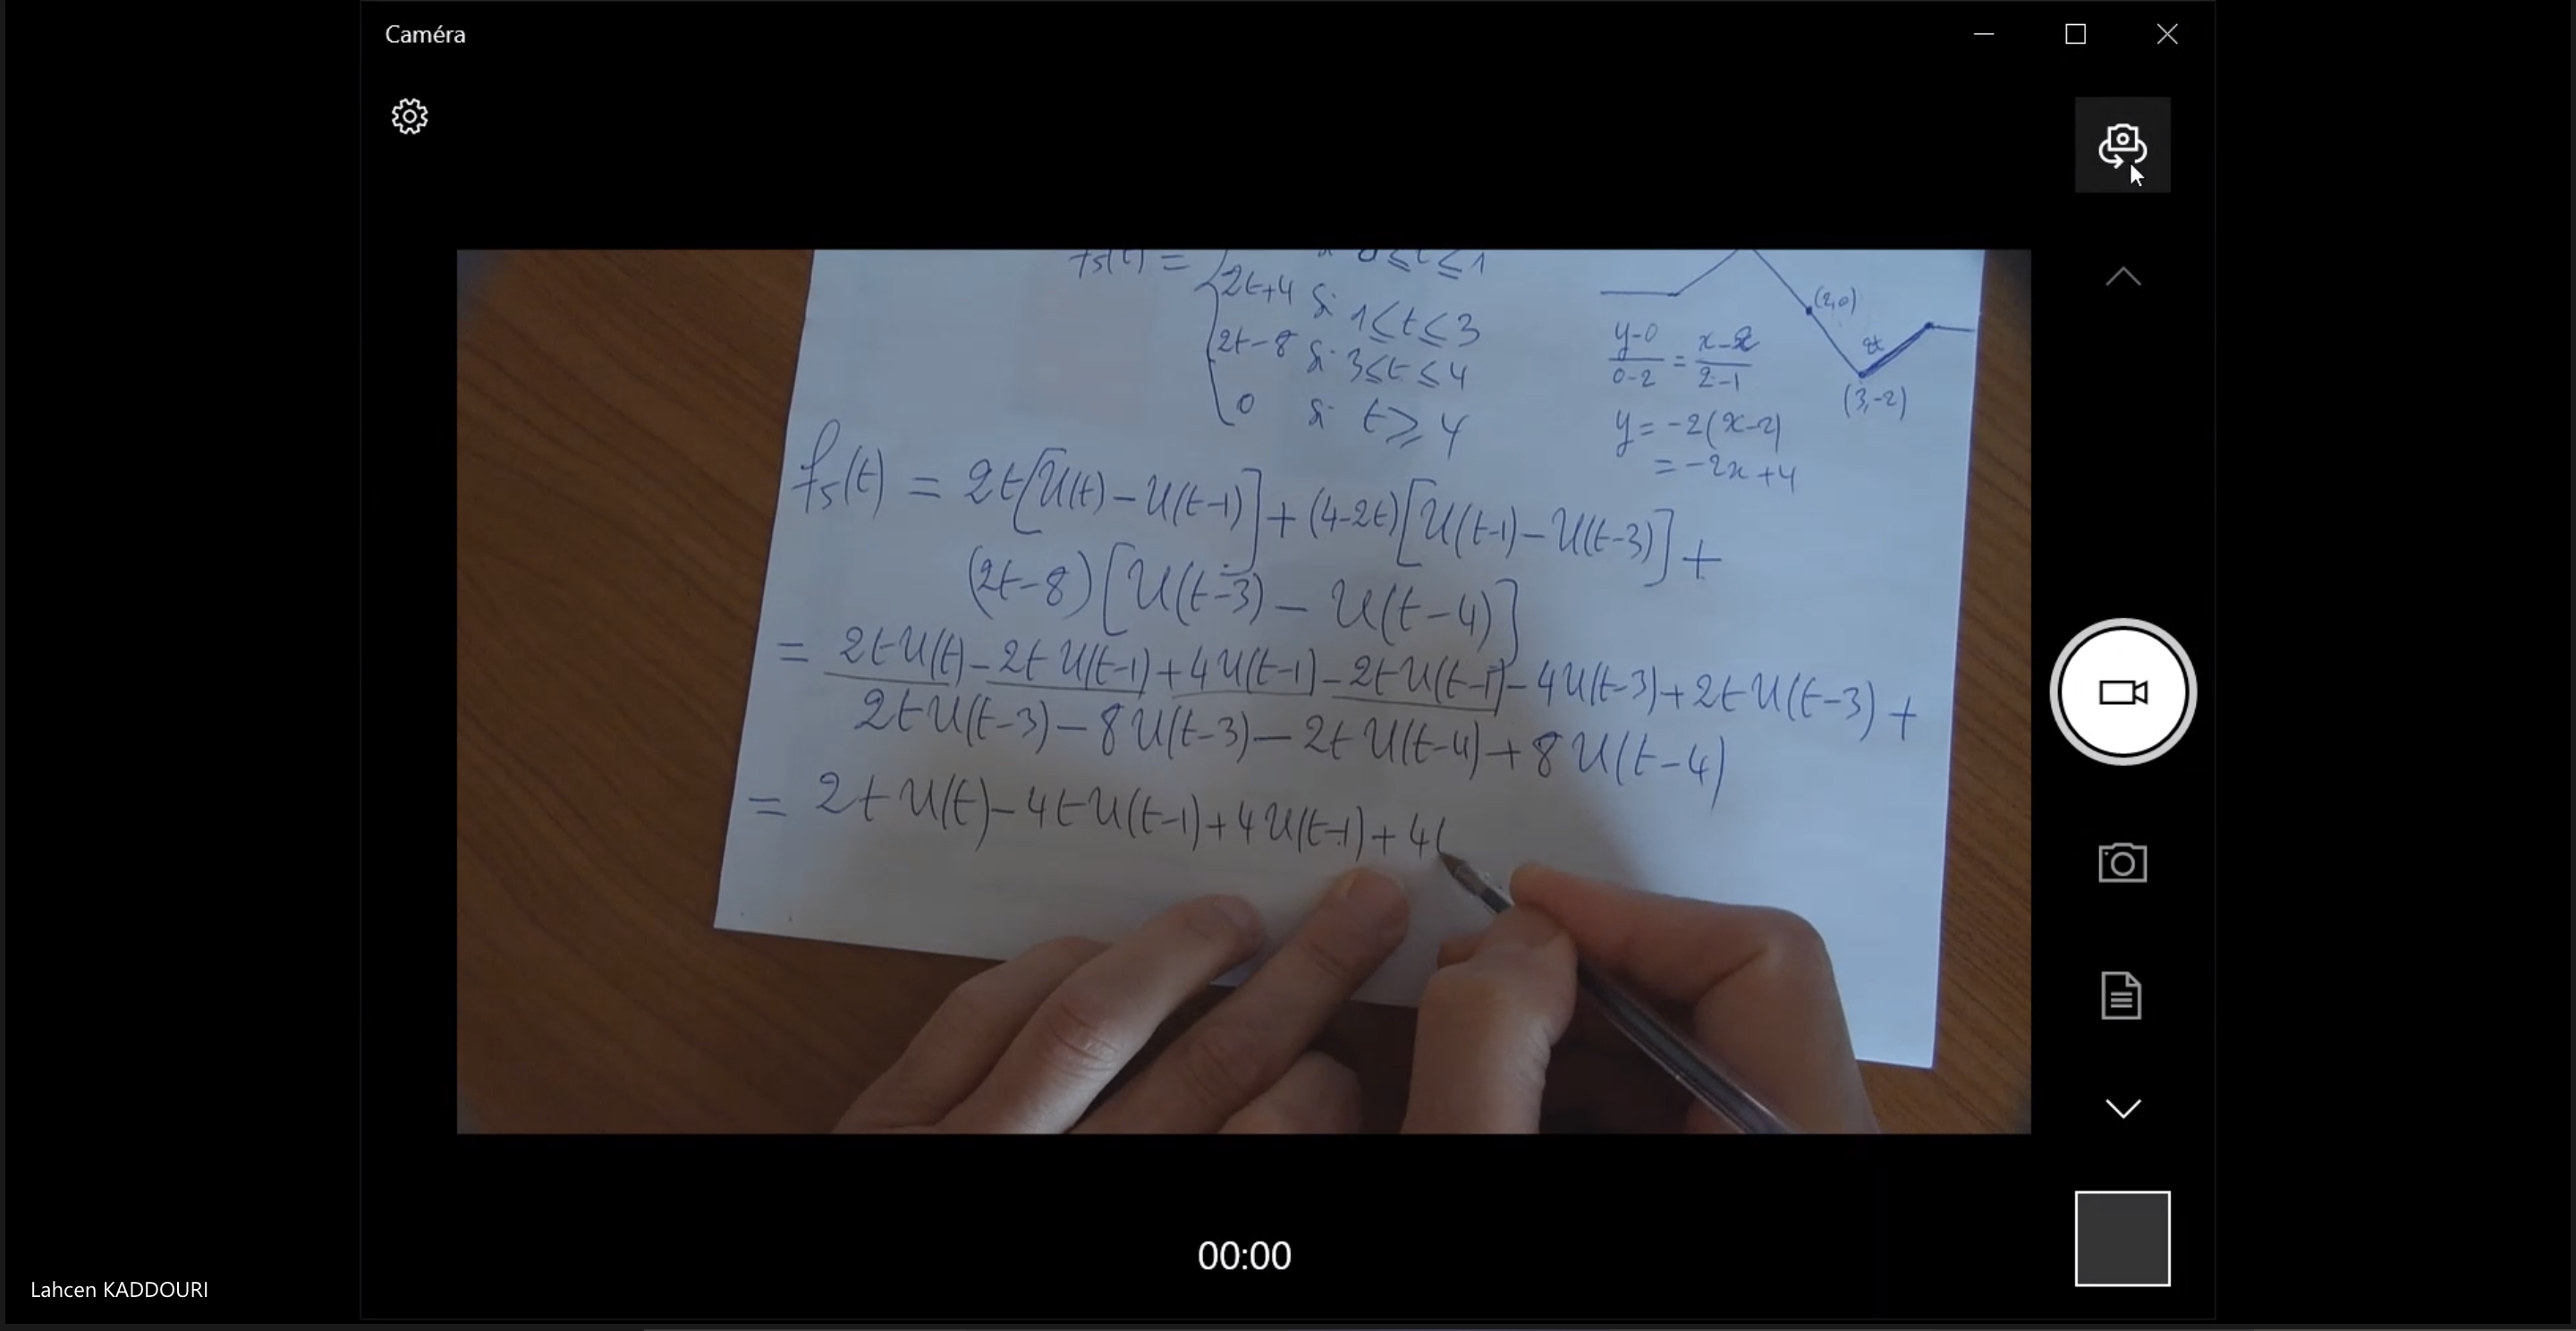 Caméra
f₅(t) = si 0 ≤ t ≤ 1
2t+4 si 1 ≤ t ≤ 3
2t-8 si 3 ≤ t ≤ 4
0 si t ≥ 4
(2,0)
2t
(3,-2)
y-0/0-2 = x-2/2-1
y = -2(x-2)
= -2x+4
f₅(t) = 2t[U(t) - U(t-1)] + (4-2t)[U(t-1) - U(t-3)] +
(2t-8)[U(t-3) - U(t-4)]
= 2tU(t) - 2tU(t-1) + 4U(t-1) - 2tU(t-1) - 4U(t-3) + 2tU(t-3) +
2tU(t-3) - 8U(t-3) - 2tU(t-4) + 8U(t-4)
= 2tU(t) - 4tU(t-1) + 4U(t-1) + 4(
00:00
Lahcen KADDOURI